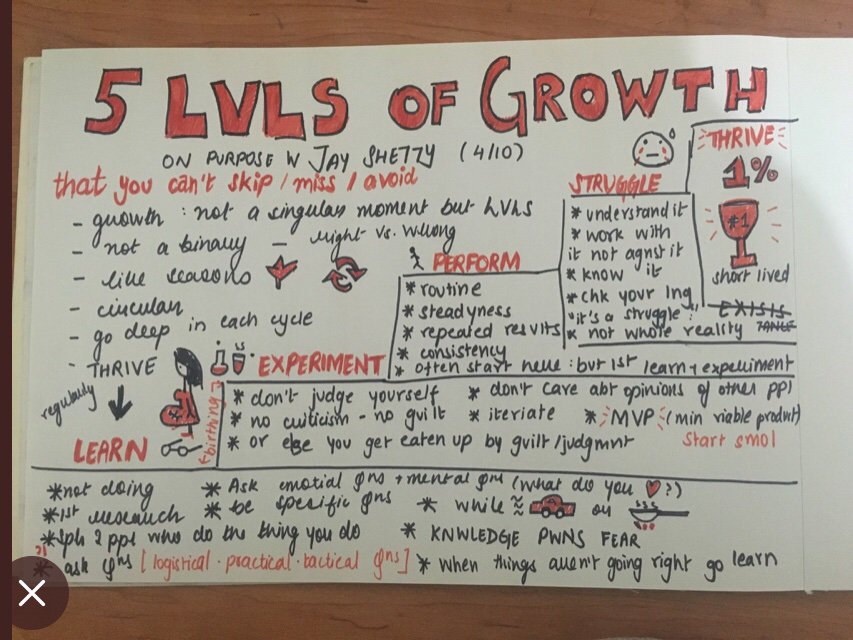 5 LVLS OF GROWTH
ON PURPOSE W JAY SHETTY (4/10)
that you can't skip / miss / avoid
- growth : not a singular moment but LVLS
- not a binary - right vs. wrong
- like seasons
- circular
- go deep in each cycle
- THRIVE
regularly
LEARN
*not doing
*1st research
*spk 2 ppl who do the thing you do
* ask qns [logistical · practical · tactical qns]
* Ask emotial qns + mental qns (what do you ♥?)
* be specific qns
* while ≈ or
* KNWLEDGE PWNS FEAR
* when things aren't going right go learn
EXPERIMENT
(birthing)
* don't judge yourself
* no criticism - no guilt
* or else you get eaten up by guilt/judgmnt
* don't care abt opinions of other ppl
* iteriate
* MVP (min viable product)
start smol
PERFORM
* routine
* steadyness
* repeated resvlts
* consistency
* often start here : but 1st learn + experiment
STRUGGLE
* understand it
* work with it not agnst it
* know it
* chk your lng
"it's a struggle"
* not whole reality
THRIVE
1%
#1
short lived
EXISTS